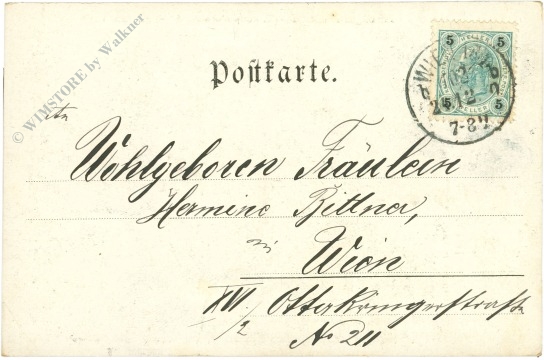 © WIMSTORE by Walkner
Postkarte.
5 5
5 5
WIEN
12
7-8N
Wohlgeboren Fräulein
Hermine Bittner,
in
Wien
XVI/2 Ottakringerstraße
No 211